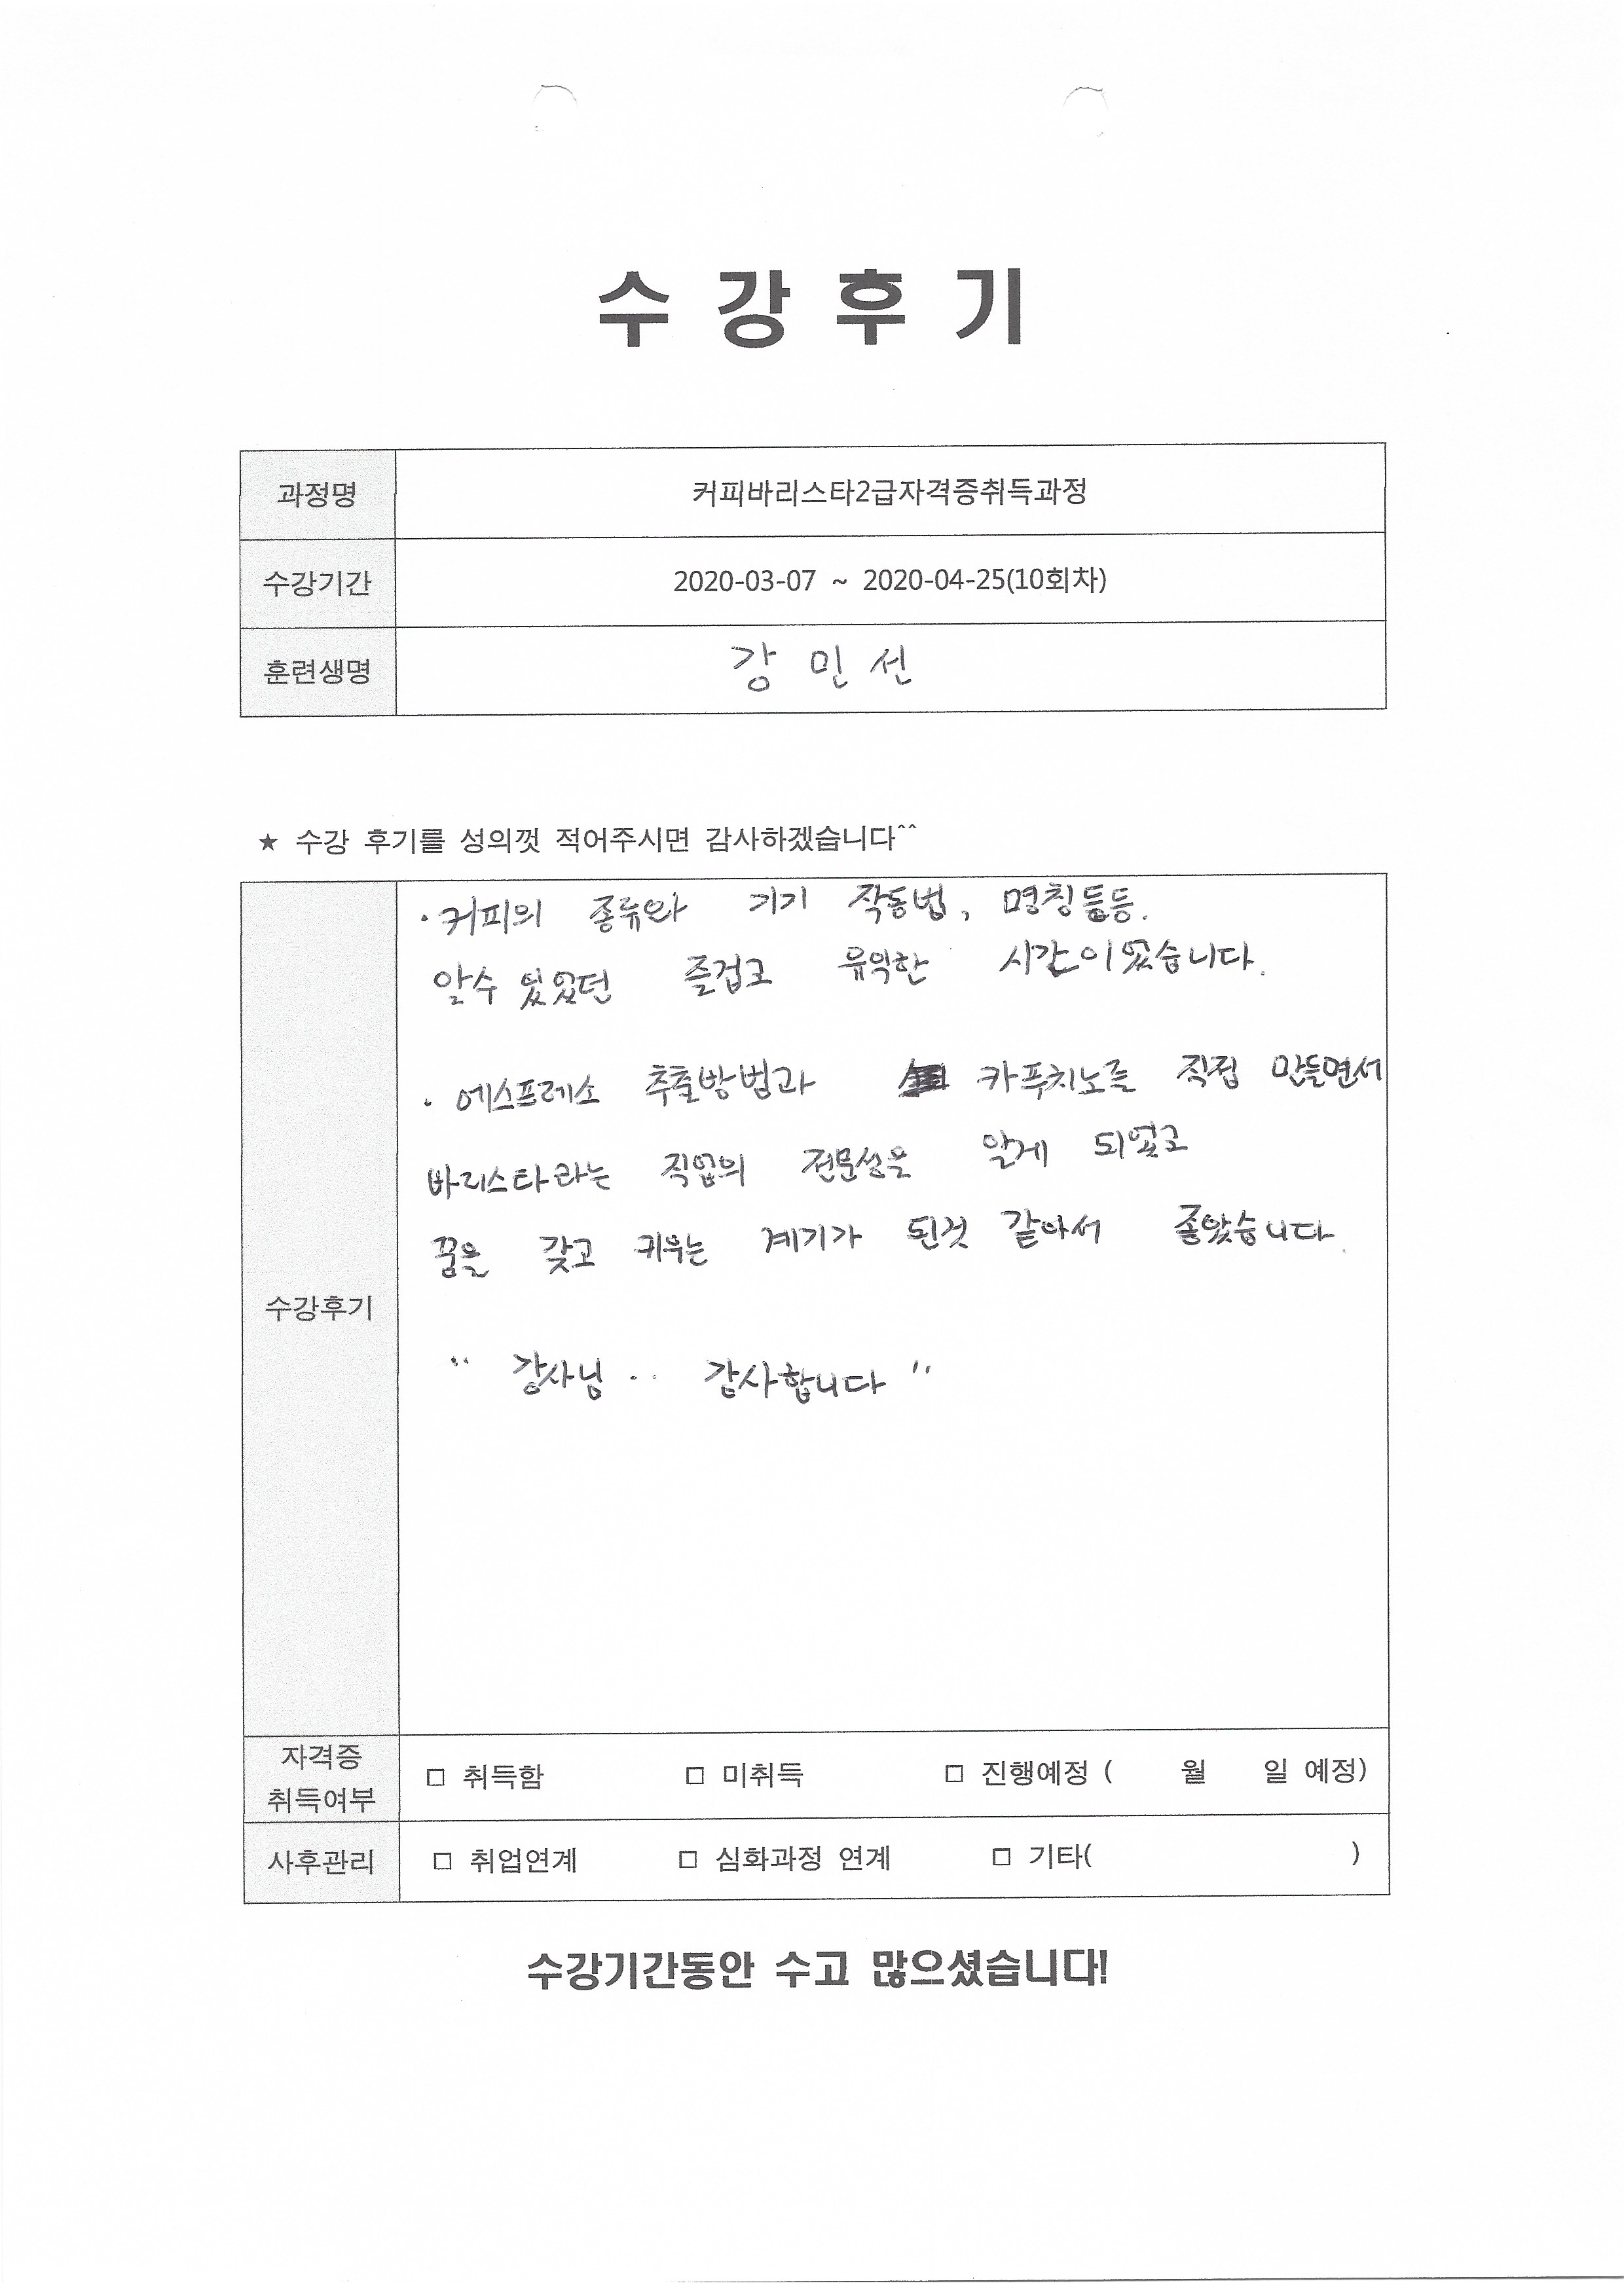 수 강 후 기
과정명 커피바리스타2급자격증취득과정
수강기간 2020-03-07 ~ 2020-04-25(10회차)
훈련생명 강 민 선
★ 수강 후기를 성의껏 적어주시면 감사하겠습니다^^
수강후기
· 커피의 종류와 기기 작동법, 명칭들등.
알수 있었던 즐겁고 유익한 시간이였습니다.
· 에스프레소 추출방법과 카푸치노를 직접 만들면서
바리스타라는 직업의 전문성을 알게 되었고
꿈을 갖고 키우는 계기가 된것 같아서 좋았습니다.
" 강사님 .. 감사합니다 "
자격증 취득여부 □ 취득함 □ 미취득 □ 진행예정 ( 월 일 예정)
사후관리 □ 취업연계 □ 심화과정 연계 □ 기타( )
수강기간동안 수고 많으셨습니다!